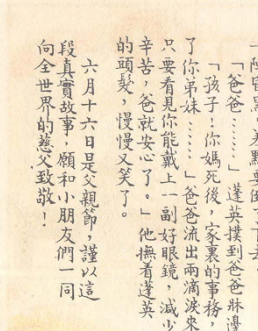 「爸爸……」蓬英撲到爸爸牀邊
「孩子!你媽死後,家裏的事務,
了你弟妹……」爸爸流出兩滴淚來
只要看見你能戴上一副好眼鏡,減少
辛苦,爸就安心了。」他撫着蓬英
的頭髮,慢慢又笑了。
六月十六日是父親節,謹以這
段真實故事,願和小朋友們一同
向全世界的慈父致敬!